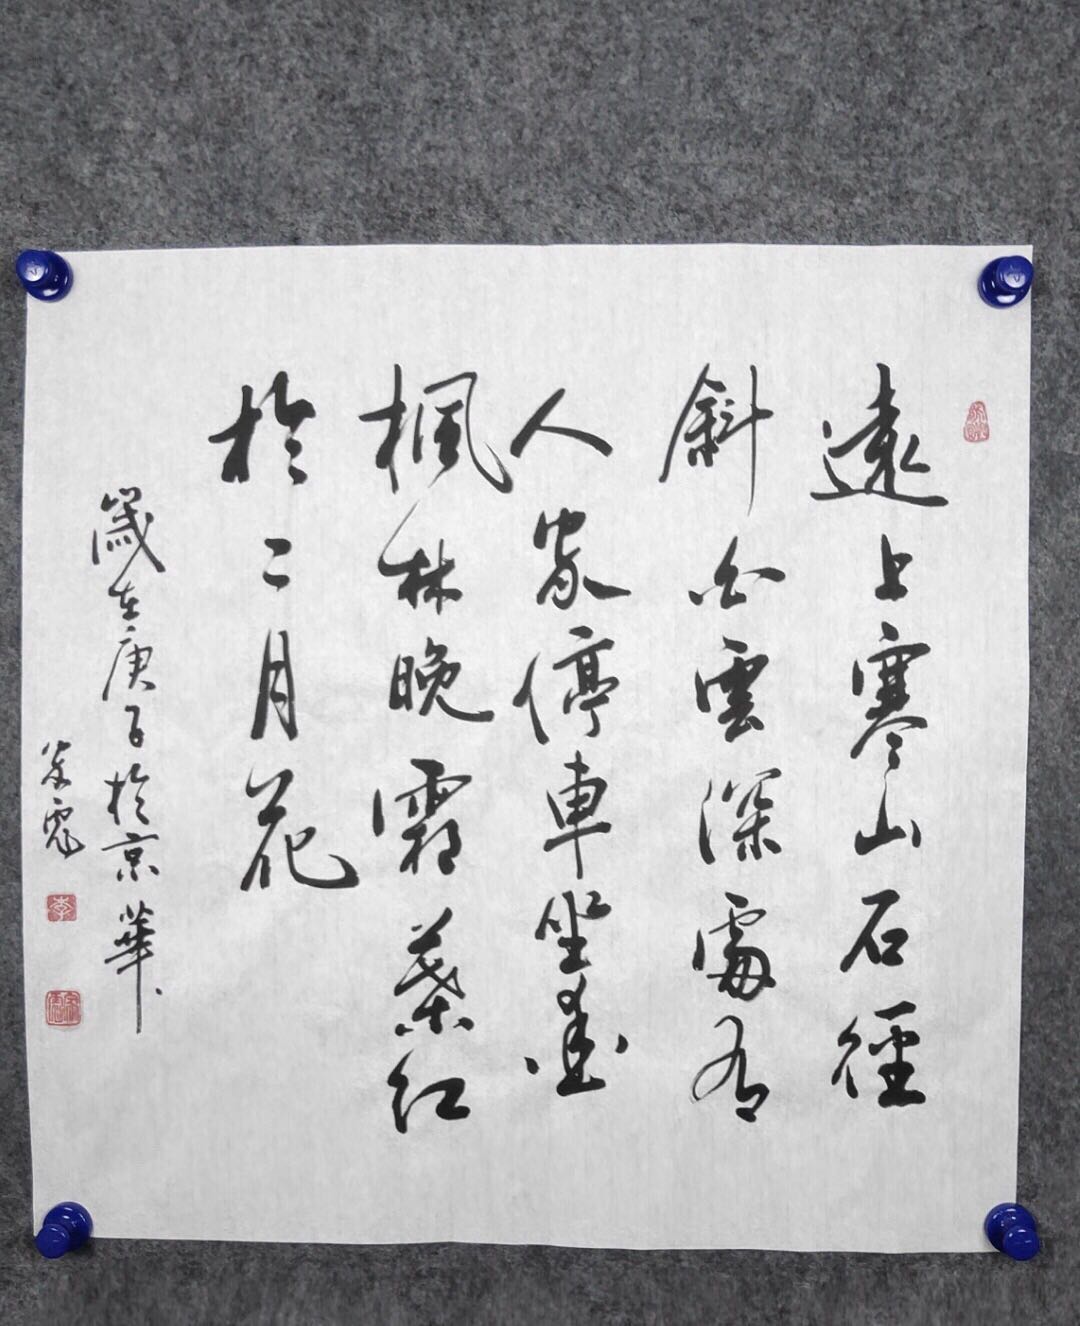 遠上寒山石徑
斜白雲深處有
人家停車坐愛
楓林晚霜葉紅
於二月花
歲在庚子於京華
李